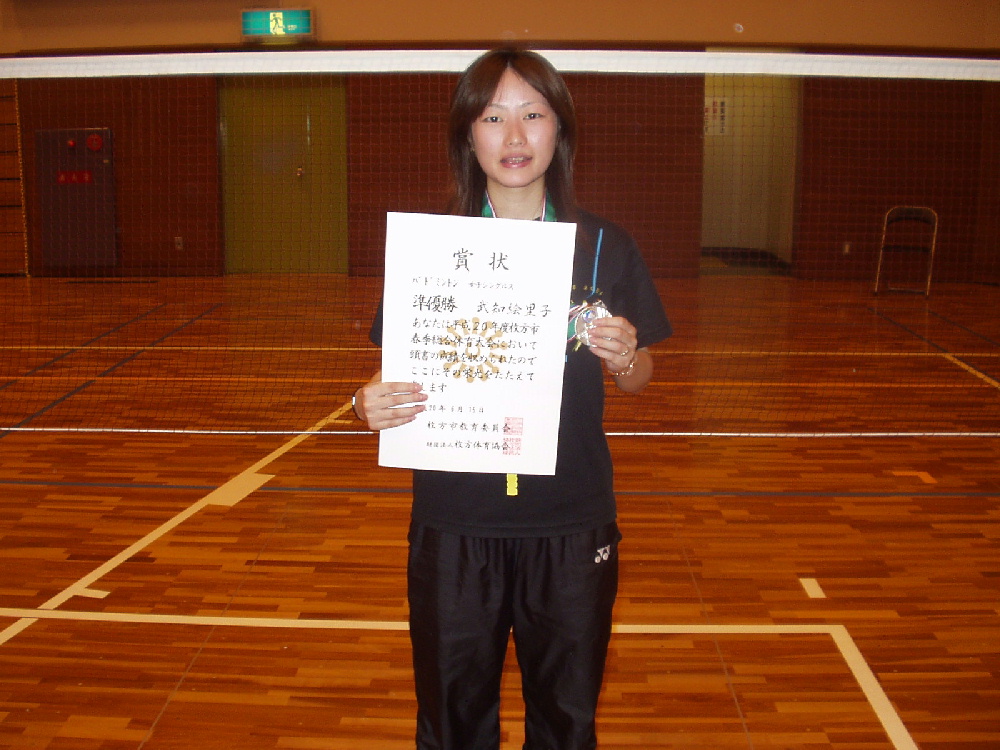 賞状
バドミントン 女子シングルス
準優勝 武知絵里子
あなたは平成20年度枚方市
春季総合体育大会において
頭書の成績を収められたので
ここにその栄光をたたえて
します
20年6月15日
枚方市教育委員会
財団法人枚方体育協会
YY